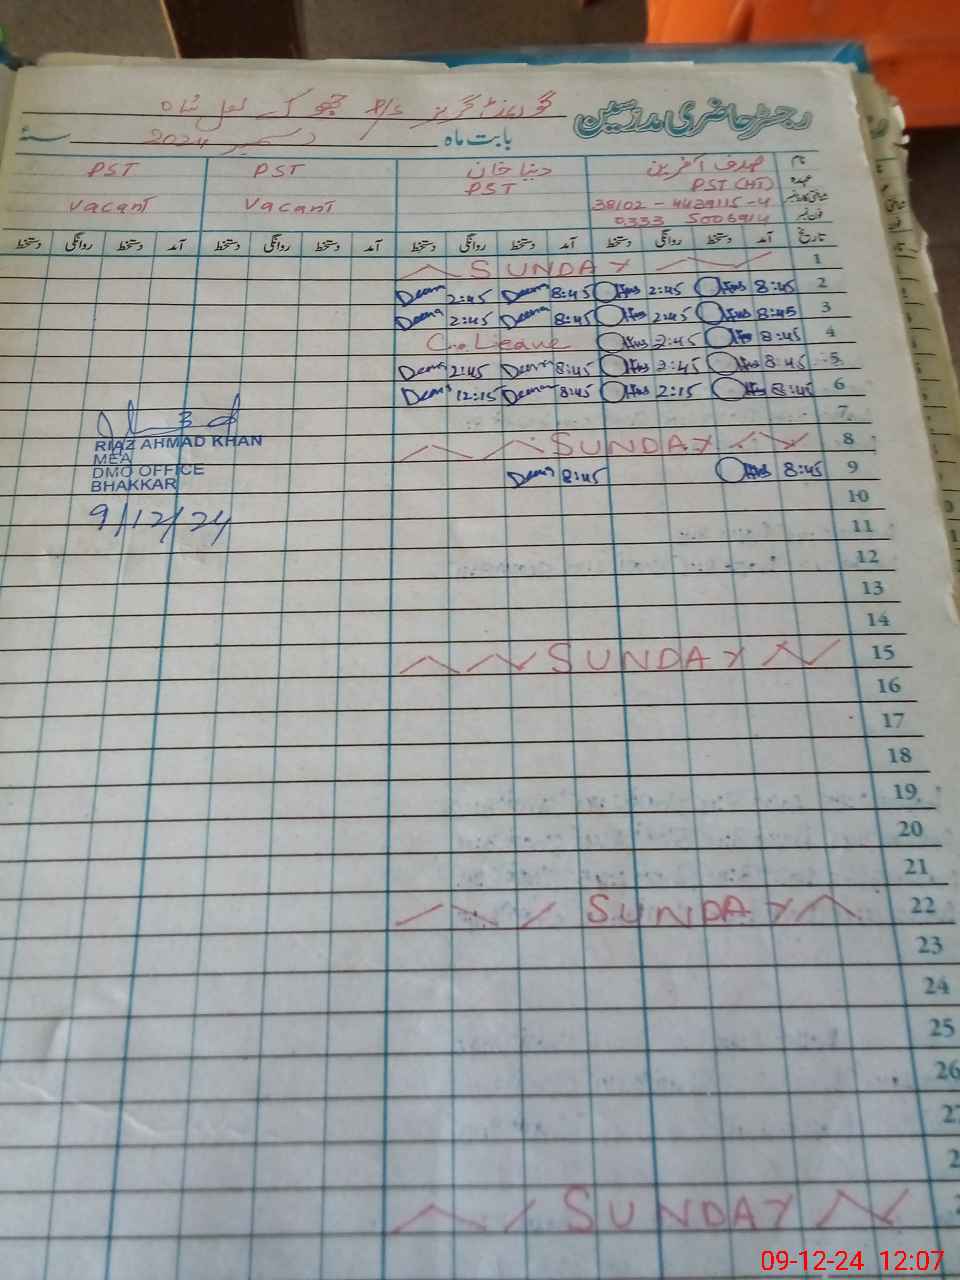 رجسٹر حاضری مدرسین
گورنمنٹ گرلز P/S جھوکے لعل شاہ
بابت ماہ دسمبر 2024 سنہ
نام صدف آفرین دینا خان PST PST
عہدہ PST (HT) PST
شناختی کارڈ نمبر 38102-4439115-4 Vacant Vacant
فون نمبر 0333 5006914
تاریخ آمد دستخط روانگی دستخط آمد دستخط روانگی دستخط آمد دستخط روانگی دستخط آمد دستخط روانگی دستخط
1 SUNDAY
2 8:45 2:45 8:45 2:45
3 8:45 2:45 8:45 2:45
4 8:45 2:45 C. Leave
5 8:45 2:45 8:45 2:45
6 8:45 2:15 8:45 12:15
7
8 SUNDAY
9 8:45 8:45
RIAZ AHMAD KHAN
MEA
DMO OFFICE
BHAKKAR
9/12/24
10
11
12
13
14
15 SUNDAY
16
17
18
19
20
21
22 SUNDAY
23
24
25
26
SUNDAY
09-12-24 12:07